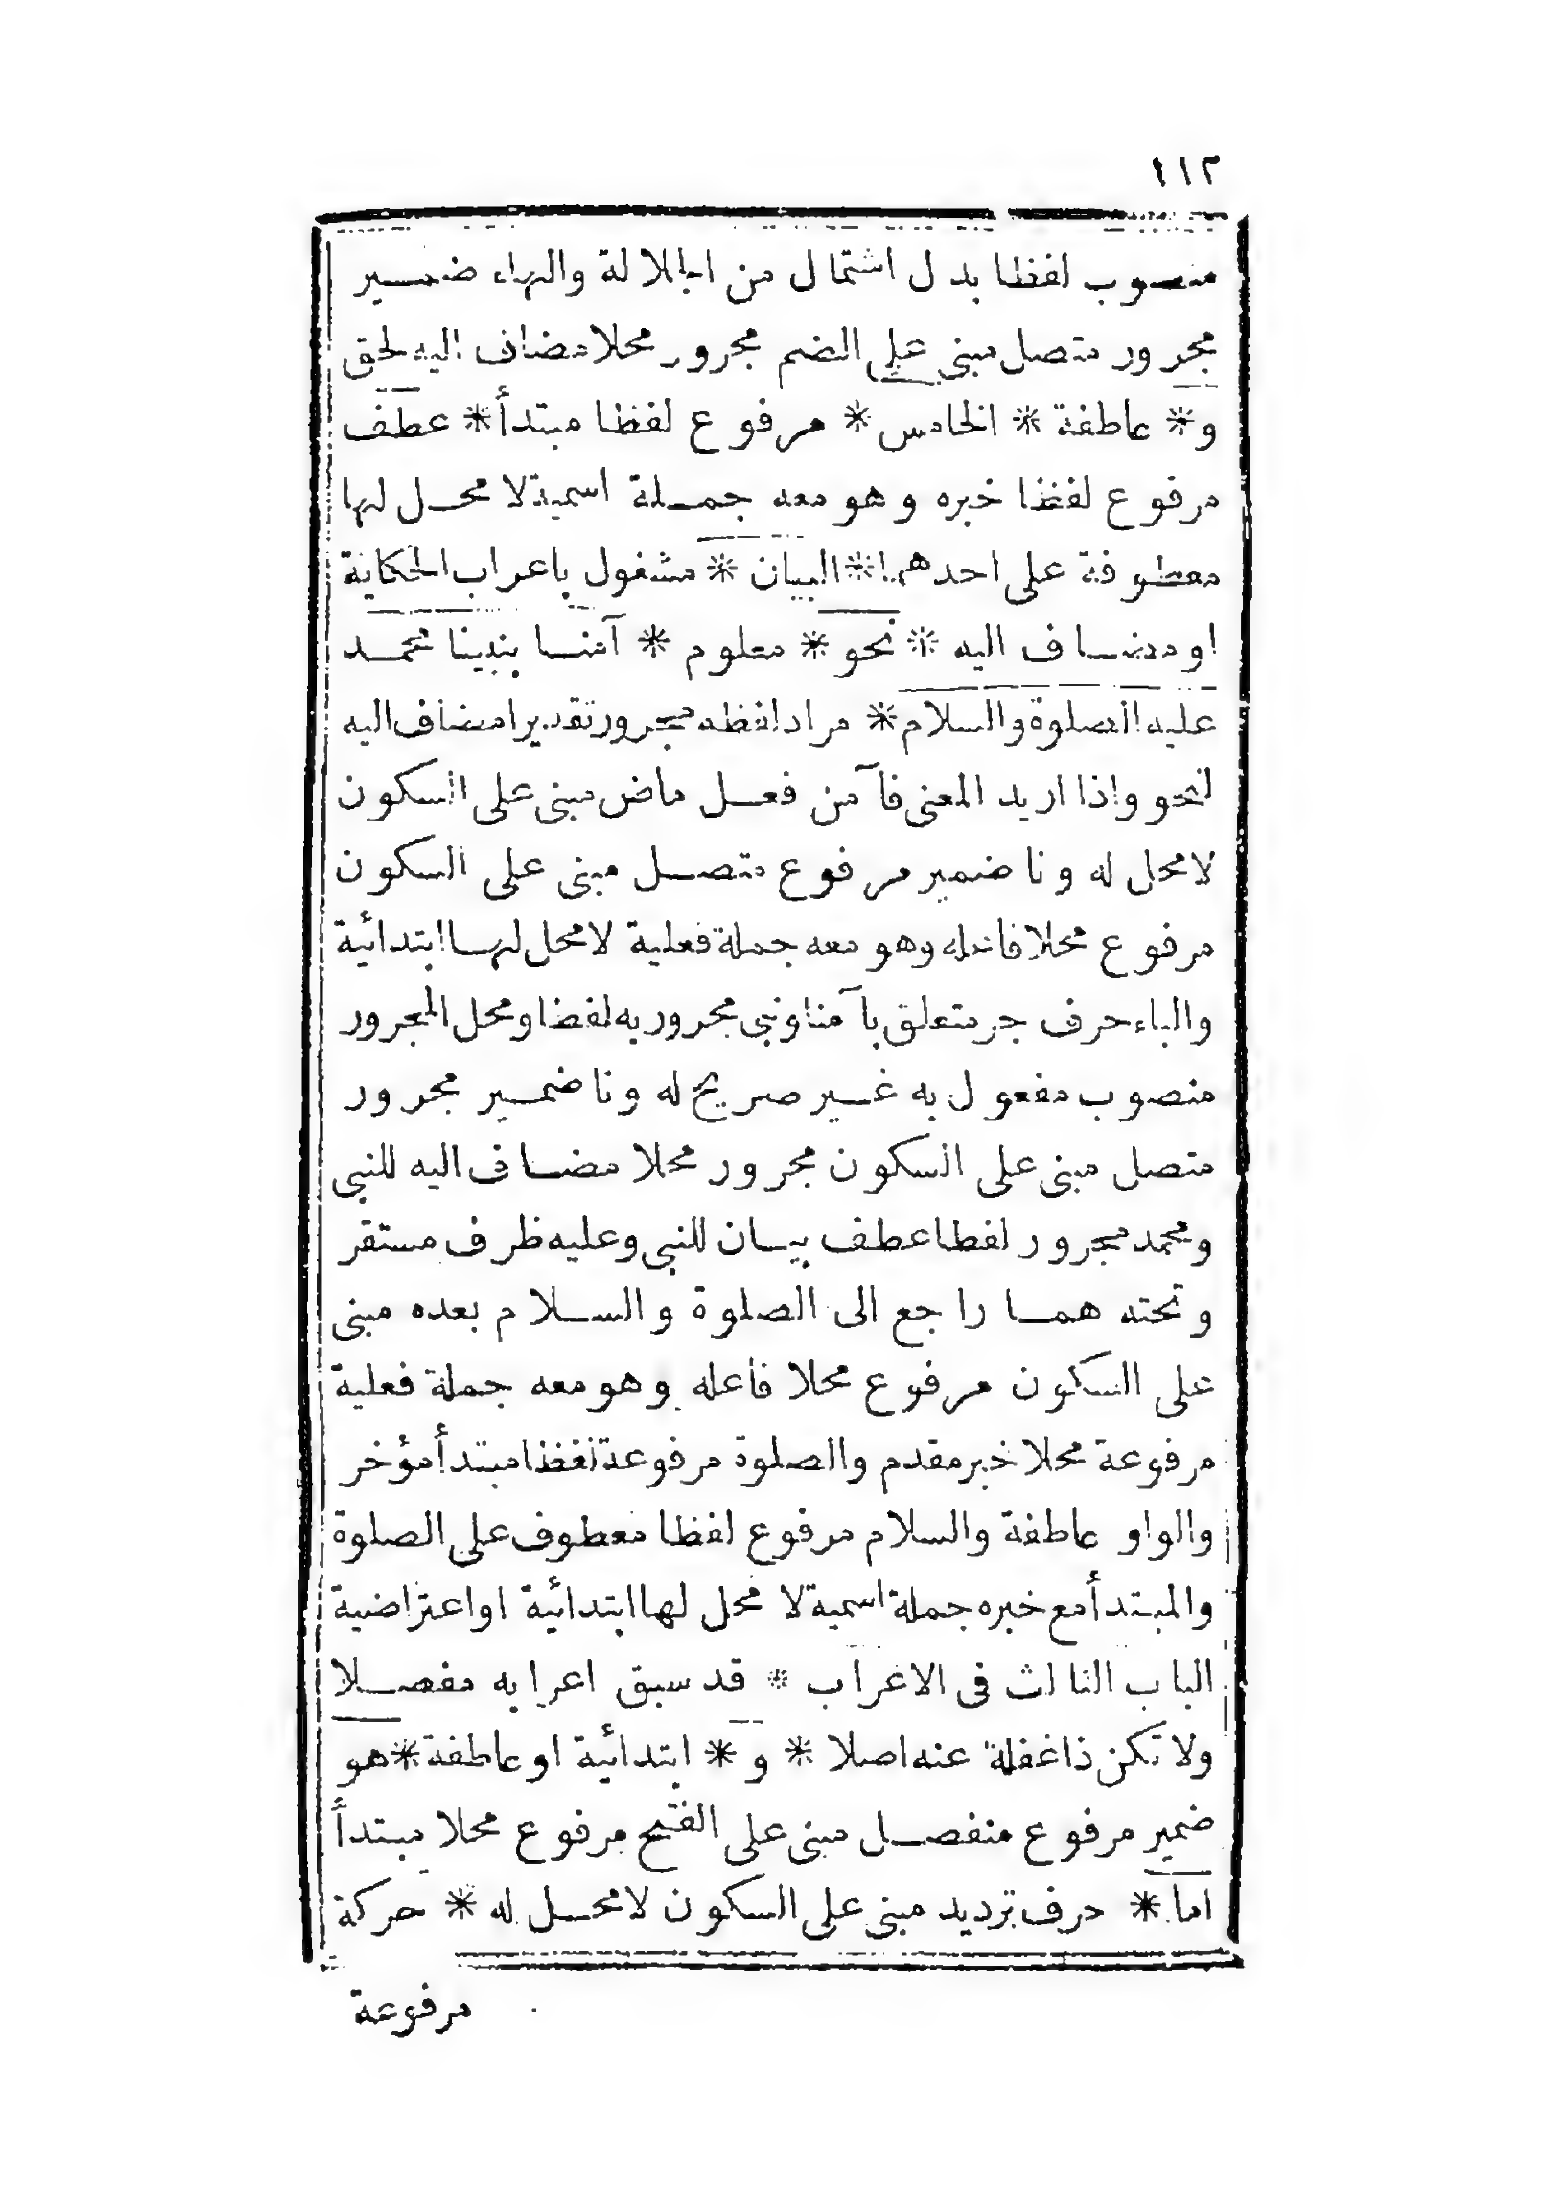 ١١٢
منصوب لفظا بدل اشتمال من الجلالة والهاء ضمير
مجرور متصل مبنى على الضم مجرور محلا مضاف اليه لحق
و * عاطفة * الخامس * مرفوع لفظا مبتدأ * عطف
مرفوع لفظا خبره وهو معه جملة اسمية لا محل لها
معطوفة على احدهما * البيان * مشغول باعراب الحكاية
او مضاف اليه * نحو * معلوم * آمنا بنبينا محمد
عليه الصلوة والسلام * مراد لفظه مجرور تقديرا مضاف اليه
لنحو واذا اريد المعنى فآمن فعل ماض مبنى على السكون
لا محل له ونا ضمير مرفوع متصل مبنى على السكون
مرفوع محلا فاعله وهو معه جملة فعلية لا محل لها ابتدائية
والباء حرف جر متعلق بآمنا ونبى مجرور به لفظا ومحل المجرور
منصوب مفعول به غير صريح له ونا ضمير مجرور
متصل مبنى على السكون مجرور محلا مضاف اليه للنبى
ومحمد مجرور لفظا عطف بيان للنبى وعليه ظرف مستقر
وتحته هما راجع الى الصلوة والسلام بعده مبنى
على السكون مرفوع محلا فاعله وهو معه جملة فعلية
مرفوعة محلا خبر مقدم والصلوة مرفوعة لفظا مبتدأ مؤخر
والواو عاطفة والسلام مرفوع لفظا معطوف على الصلوة
والمبتدأ مع خبره جملة اسمية لا محل لها ابتدائية او اعتراضية
الباب الثالث فى الاعراب * قد سبق اعرابه مفصلا
ولا تكن ذا غفلة عنه اصلا * و * ابتدائية او عاطفة * هو
ضمير مرفوع منفصل مبنى على الفتح مرفوع محلا مبتدأ
اما * حرف ترديد مبنى على السكون لا محل له * حركة
مرفوعة